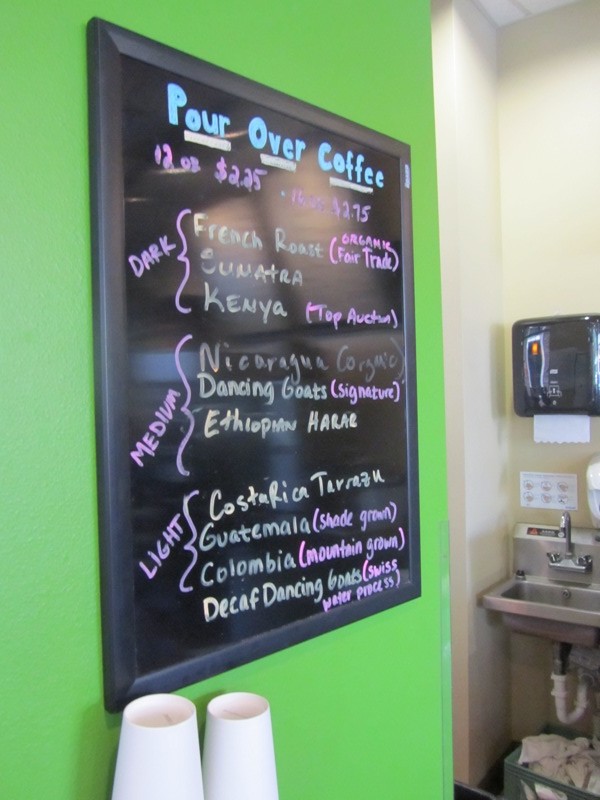 Pour Over Coffee
12 oz $2.25
· 16 oz $2.75
DARK
French Roast (ORGANIC Fair Trade)
SUMATRA
KENYA (Top Auction)
MEDIUM
Nicaragua (organic)
Dancing Goats (signature)
ETHIOPIAN HARAR
LIGHT
Costa Rica Tarrazu
Guatemala (shade grown)
Colombia (mountain grown)
Decaf Dancing Goats (swiss
water process)